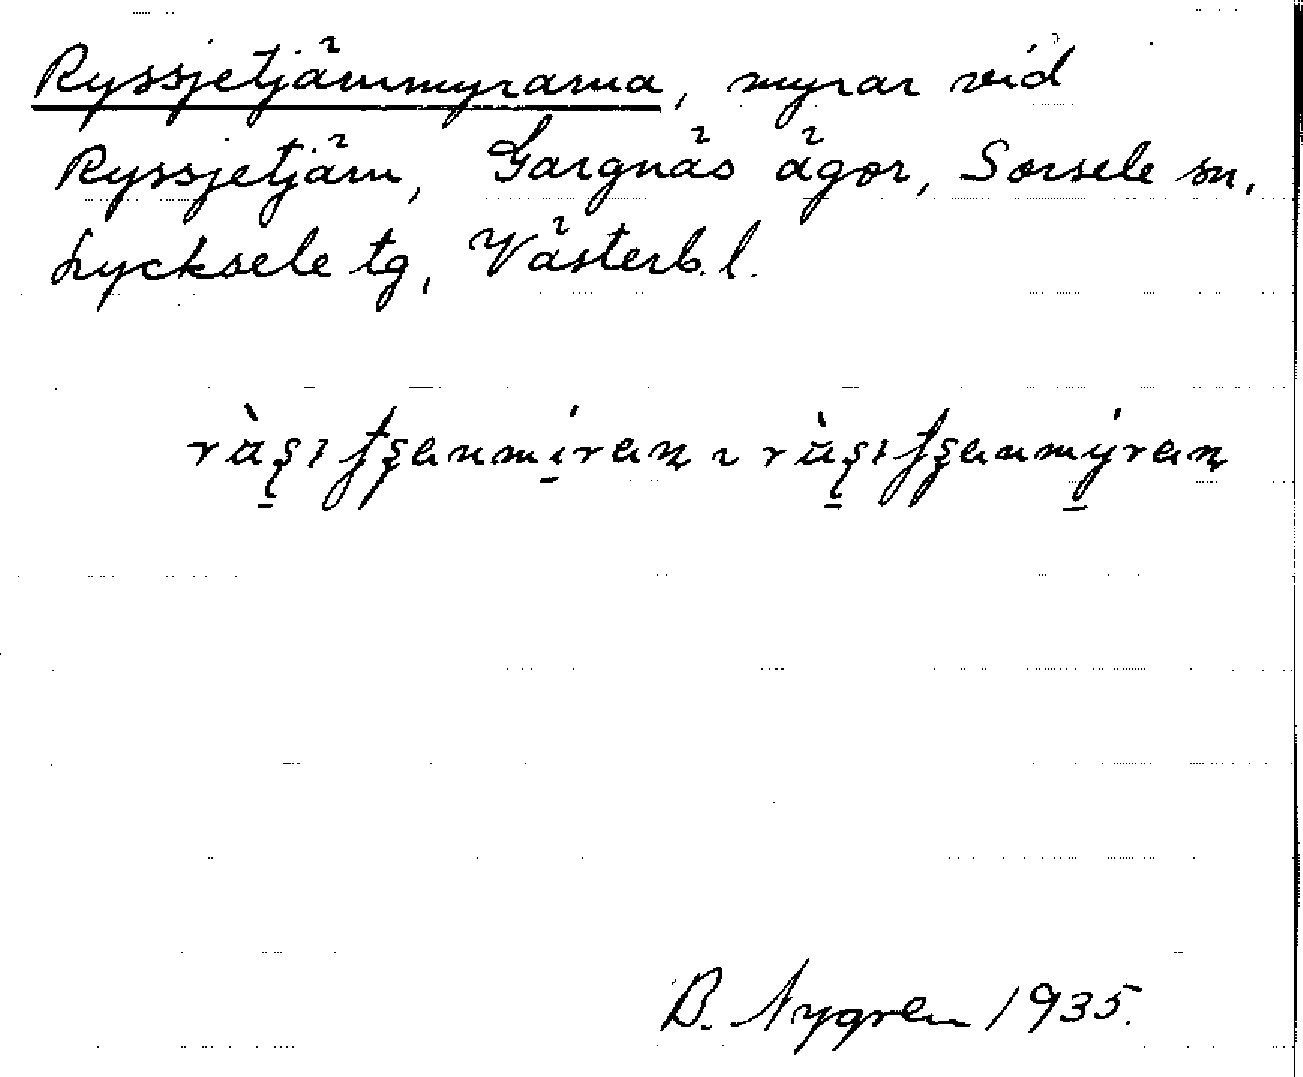 Ryssjetjärnmyrarna, myrar vid
Ryssjetjärn, Gargnäs ägor, Sorsele sn,
Lycksele tg, Västerb. l.
B. Nygren 1935.